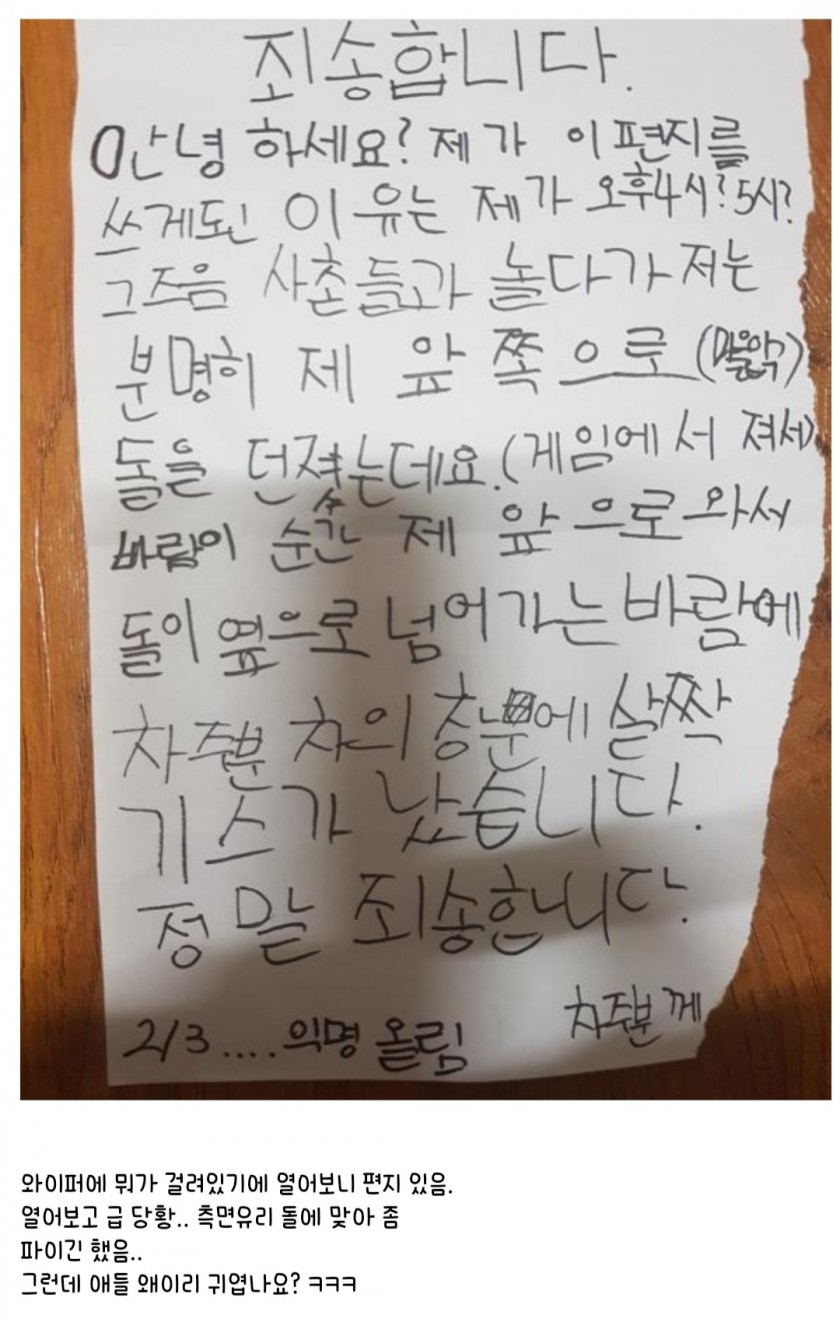 죄송합니다.
안녕 하세요? 제가 이 편지를
쓰게된 이유는 제가 오후4시? 5시?
그즈음 사촌들과 놀다가 저는
분명히 제 앞 쪽으로
돌을 던졌는데요.(게임에서 져서)
바람이 순간 제 앞으로 와서
돌이 옆으로 넘어가는 바람에
차주분 차의 살짝
기스가 났습니다.
정말 죄송합니다.
차주분 께
2/3 .... 익명 올림
와이퍼에 뭐가 걸려있기에 열어보니 편지 있음.
열어보고 급 당황.. 측면유리 돌에 맞아 좀
파이긴 했음..
그런데 애들 왜이리 귀엽나요? ㅋㅋㅋ